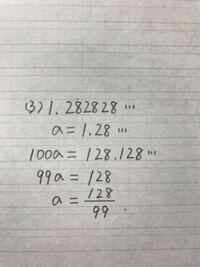 (3) 1.282828 …
a = 1.28 …
100a = 128.128 …
99a = 128
a = 128/99 .